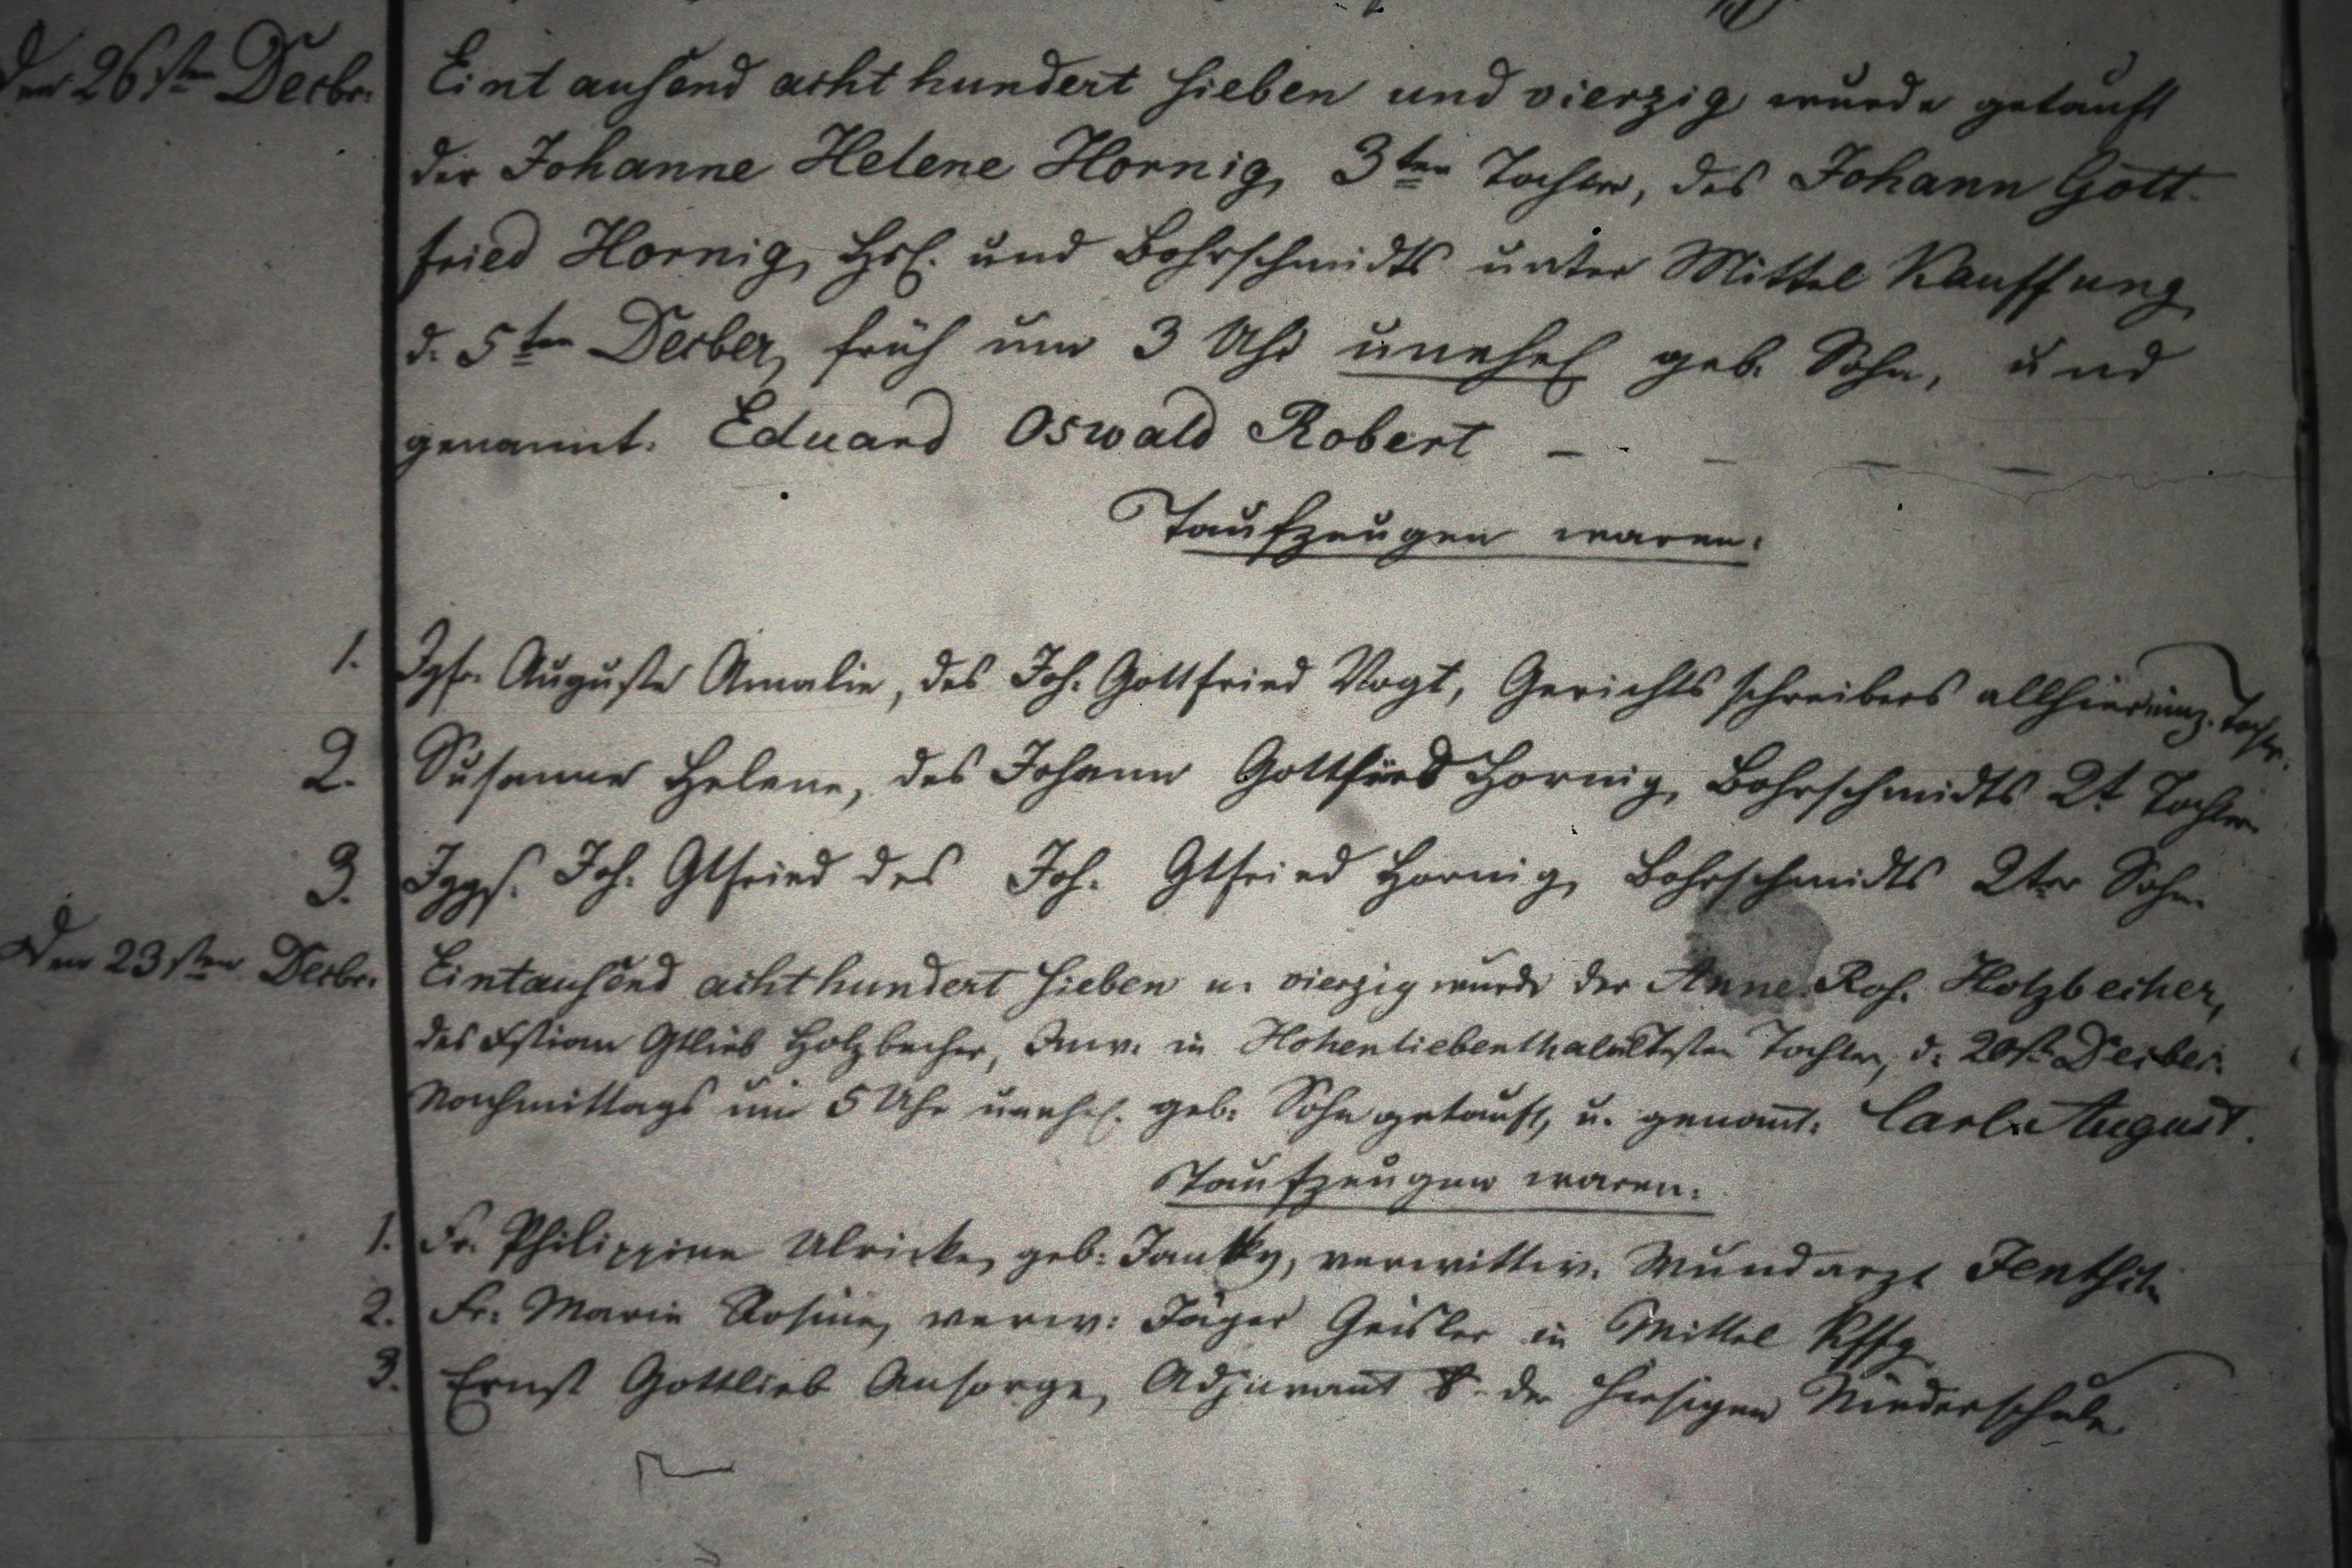 Den 26sten Decbr. Eintausend achthundert sieben und vierzig wurde getauft
der Johanne Helene Hornig, 3ten Tochter, des Johann Gott-
fried Hornig, Hsl. und Bohrschmidts unter Mittel Kauffung
d. 5ten Decber, früh um 3 Uhr unehel geb. Sohn, und
genannt. Eduard Oswald Robert
Taufzeugen waren:
1. Jgfr. Auguste Amalie, des Joh. Gottfried Vogt, Gerichtsschreibers allhier einz. Tochter.
2. Susanne Helene, des Johann Gottfried Hornig, Bohrschmidts 2t Tochter
3. Jggs. Joh. Gtfried des Joh. Gtfried Hornig, Bohrschmidts 2ter Sohn
Den 23sten Decbr. Eintausend achthundert sieben u. vierzig wurde der Anne Ros. Holzbecher,
des Gtlieb Holzbecher, Inw. in Hohenliebenthal ältesten Tochter, d. 20st. Decber.
Nachmittags um 5 Uhr unehel. geb. Sohn getauft, u. genant: Carl August.
Taufzeugen waren:
1. Fr. Philippine Ulricke, geb: verwittw. Wundarzt
2. Fr. Marie Rosine, verw: Jäger Geisler in Mittel Kffg
3. Ernst Gottlieb Ansorge, Adjuvant der hiesigen Niederschule